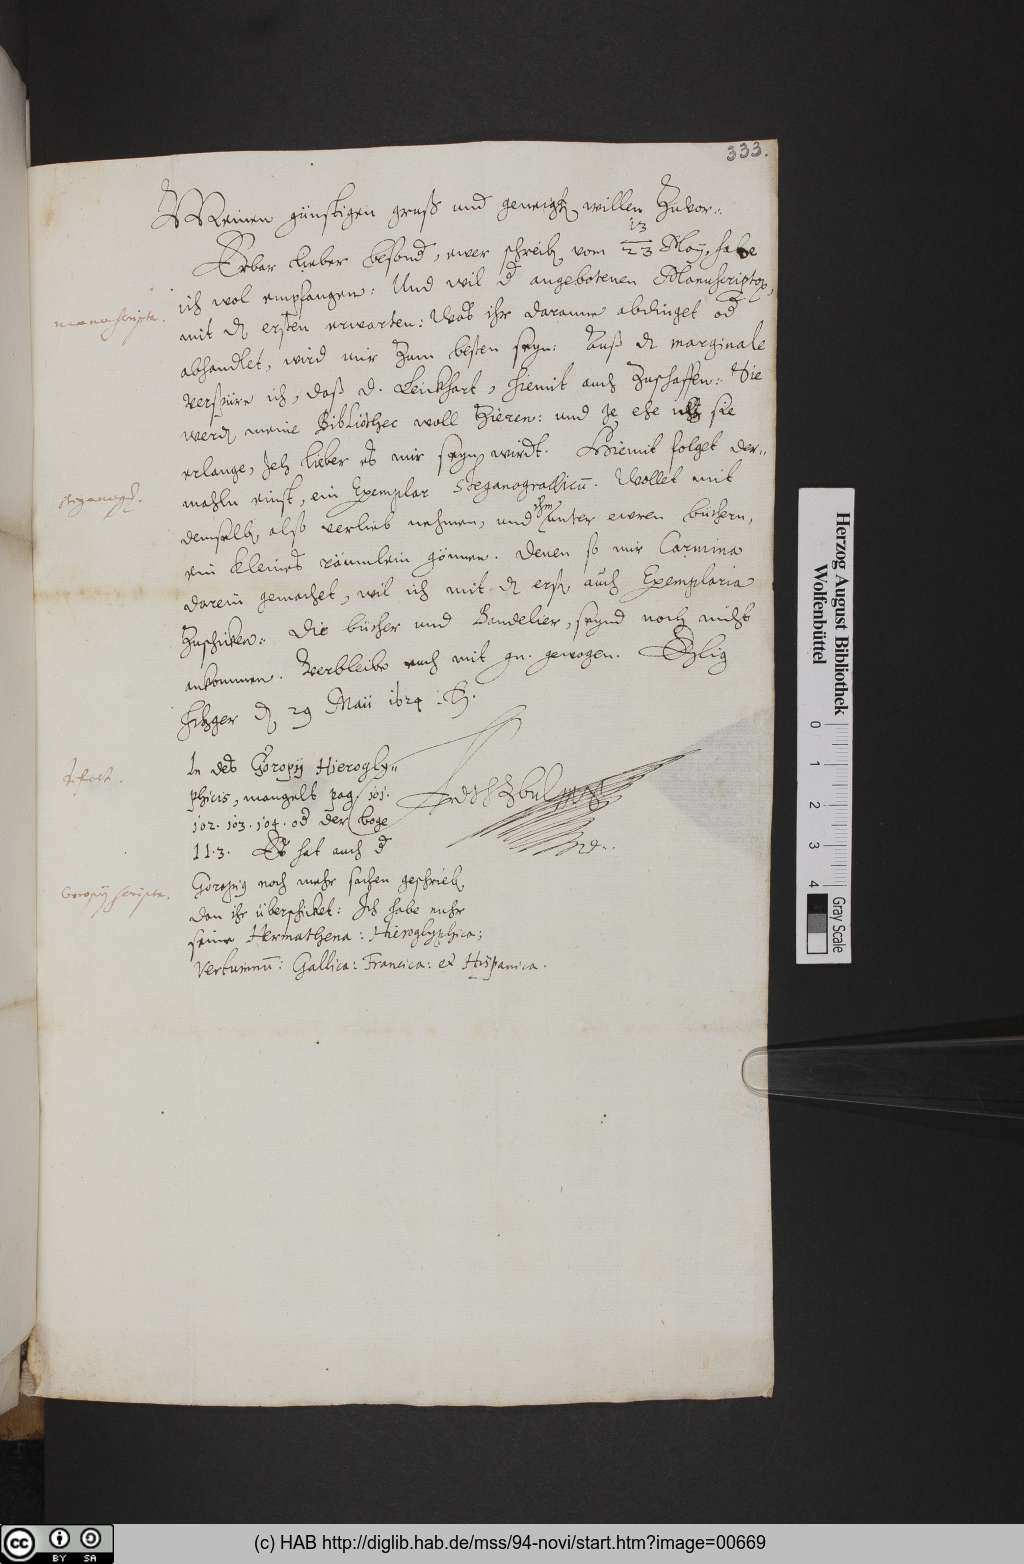 333.
Meinen günstigen gruß und geneigt willen Zuvor:.
Erbar Lieber Besond, ewer schreib vom 13/23 May, habe
ich wol empfangen: Und wil d angebotenen Manuscripton,
manuscripta.
mit d ersten erwarten: Was ihr daranne abdinget od
abhandlet, wird mir zum besten seyn: Auß d marginale
verspüre ich, daß D. Leickhart, hiemit auch Zuschaffen: Sie
werd meine Bibliothec woll Zieren: und Je ehe ich sie
erlange, Je lieber es mir seyn wirdt. Hiemit folget der-
steganogr.
mahln einst, ein Exemplar Steganograficū. Wollet mit
demselb also verlieb nehmen, und ihm unter ewren büchern,
ein kleines räumlein gönnen. Denen so mir Carmina
darein gemachet, wil ich mit d erst auch Exemplaria
Zuschicken: Die bücher und Bandelier, seynd noch nicht
ankommen. Verbleibe euch mit gn. gewogen. Eylig
Hitzger d 29 Maii 1624.
In des Goropij Hierogly-
defect.
phicis, mangelt pag. 101.
102. 103. 104. od der boge
II.3. Es hat auch d
Goropij scripta.
Goropius noch mehr sachen geschrieb,
dan ihr überschicket: Ich habe nuhr
seine Hermathena: Hieroglyphica;
Vertumnū: Gallica: Francica: et Hispanica.
Herzog August Bibliothek
Wolfenbüttel
0 1 2 3 4
Gray Scale
cc BY SA
(c) HAB http://diglib.hab.de/mss/94-novi/start.htm?image=00669